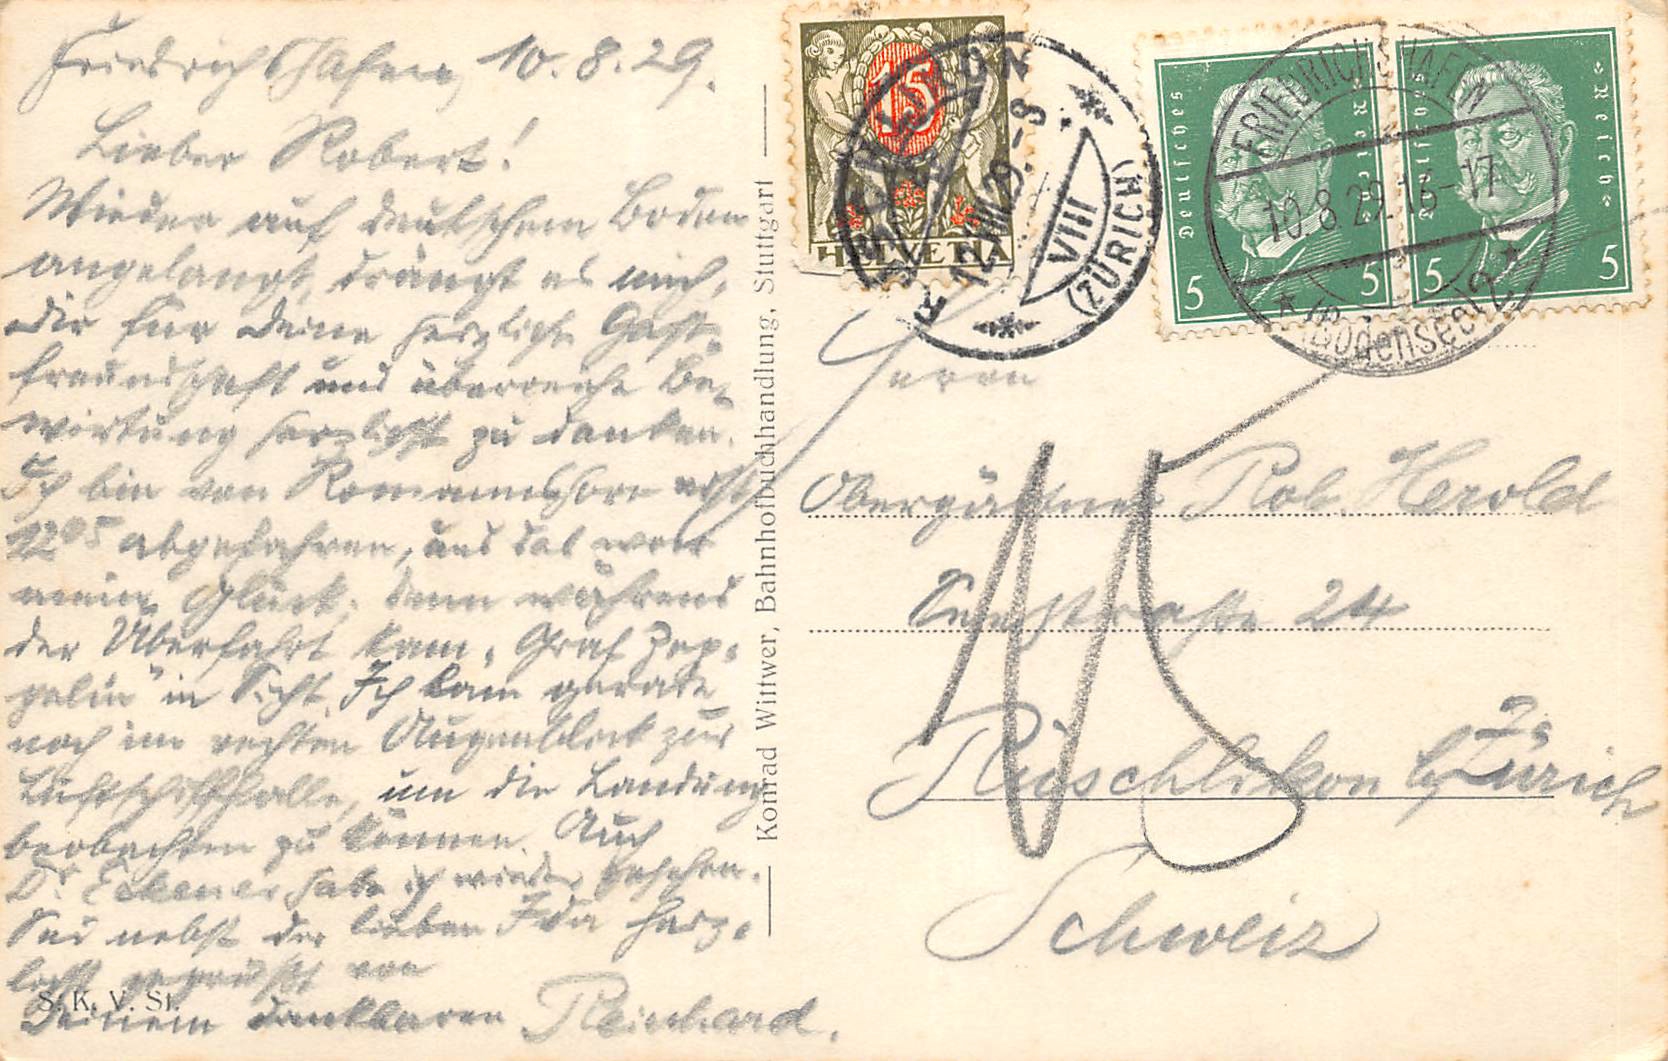 Friedrichshafen, 10.8.29.
Lieber Robert!
Wieder auf deutschem Boden
angelangt, drängt es mich,
dir für Deine herzliche Gast-
freundschaft und überreiche Be-
wirtung herzlichst zu danken.
Ich bin von Romannshorn erst
12⁰⁵ abgefahren, und das war
mein Glück, denn während
der Überfahrt kam „Graf Zep-
pelin" in Sicht. Ich kam gerade
noch im rechten Augenblick zur
Luftschiffhalle, um die Landung
beobachten zu können. Auch
Dr Eckener habe ich wieder gesehen.
Sei nebst der lieben Ida herz-
lichst gegrüßt von
Deinem dankbaren Reinhard.
S. K. V. St.
Konrad Wittwer, Bahnhofbuchhandlung, Stuttgart
15
HELVETIA
12.VIII.29.-8
VIII
(ZÜRICH)
Deutsches Reich
5 5
Deutsches Reich
5 5
FRIEDRICHSHAFEN
10.8.29.16-17
(Bodensee) 2
Herrn
Obergärtner Rob. Herold
Seestraße 24
Rüschlikon b/Zürich
Schweiz
15